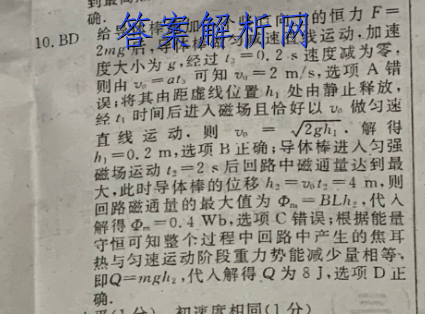 确.
10. BD 给导体棒
的恒力 F=
2mg后,导体棒做匀减速直线运动,加速
度大小为 g,经过 t₃=0.2 s 速度减为零,
则由 v₀=at₃ 可知 v₀=2 m/s,选项 A 错
误;将其由距虚线位置 h₁ 处由静止释放,
经 t₁ 时间后进入磁场且恰好以 v₀ 做匀速
直线运动.则 v₀=√2gh₁.解得
h₁=0.2 m,选项 B 正确;导体棒进入匀强
磁场运动 t₂=2 s 后回路中磁通量达到最
大,此时导体棒的位移 h₂=v₀t₂=4 m,则
回路磁通量的最大值为 Φₘ=BLh₂,代入
解得 Φₘ=0.4 Wb,选项 C 错误;根据能量
守恒可知整个过程中回路中产生的焦耳
热与匀速运动阶段重力势能减少量相等,
即Q=mgh₂,代入解得 Q 为 8 J,选项 D 正
确.
初速度相同(1分)
答案解析网